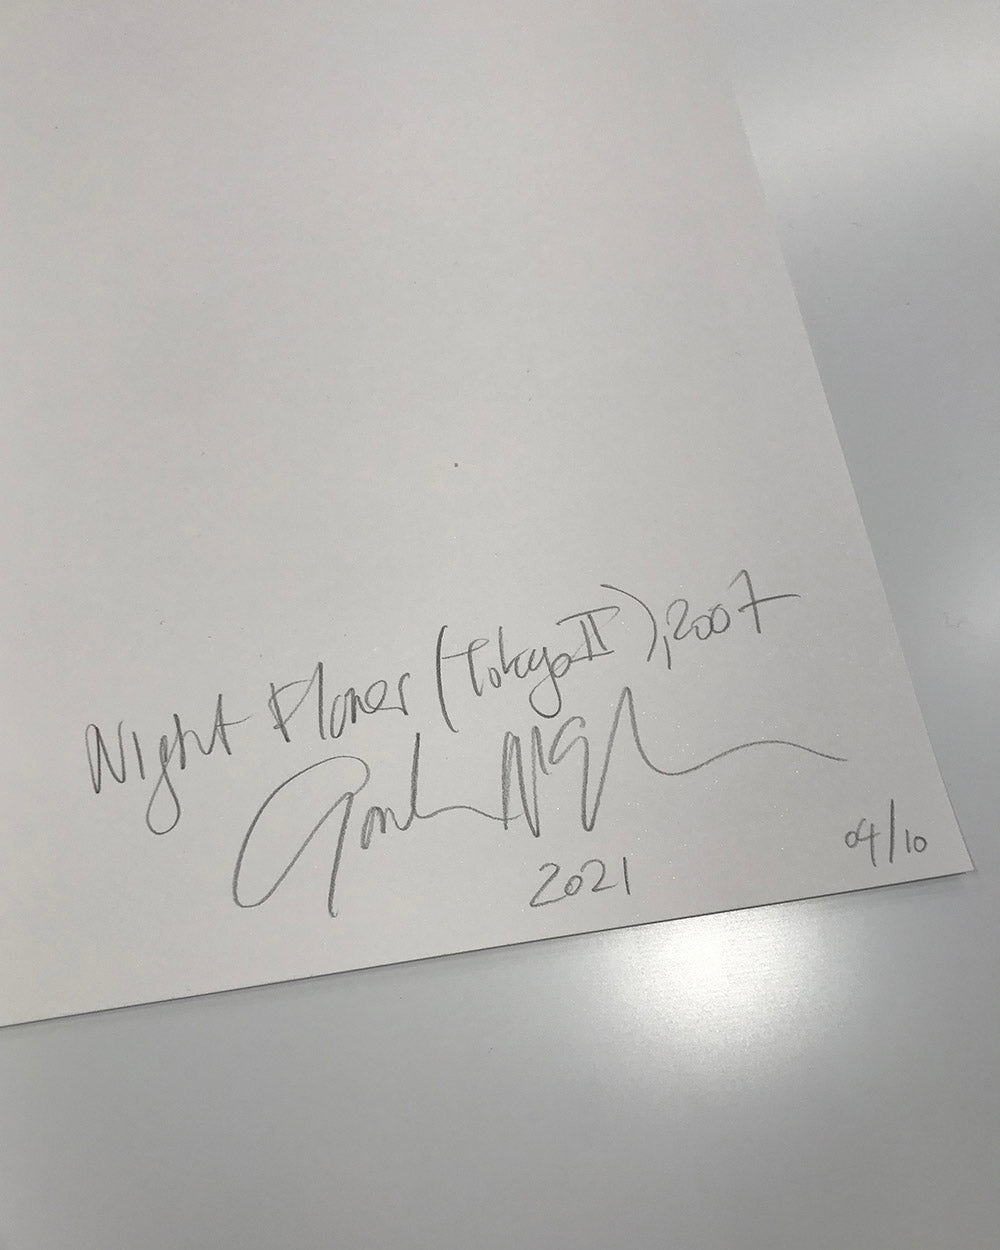 Night Flower (Tokyo II), 2007
2021
04/10